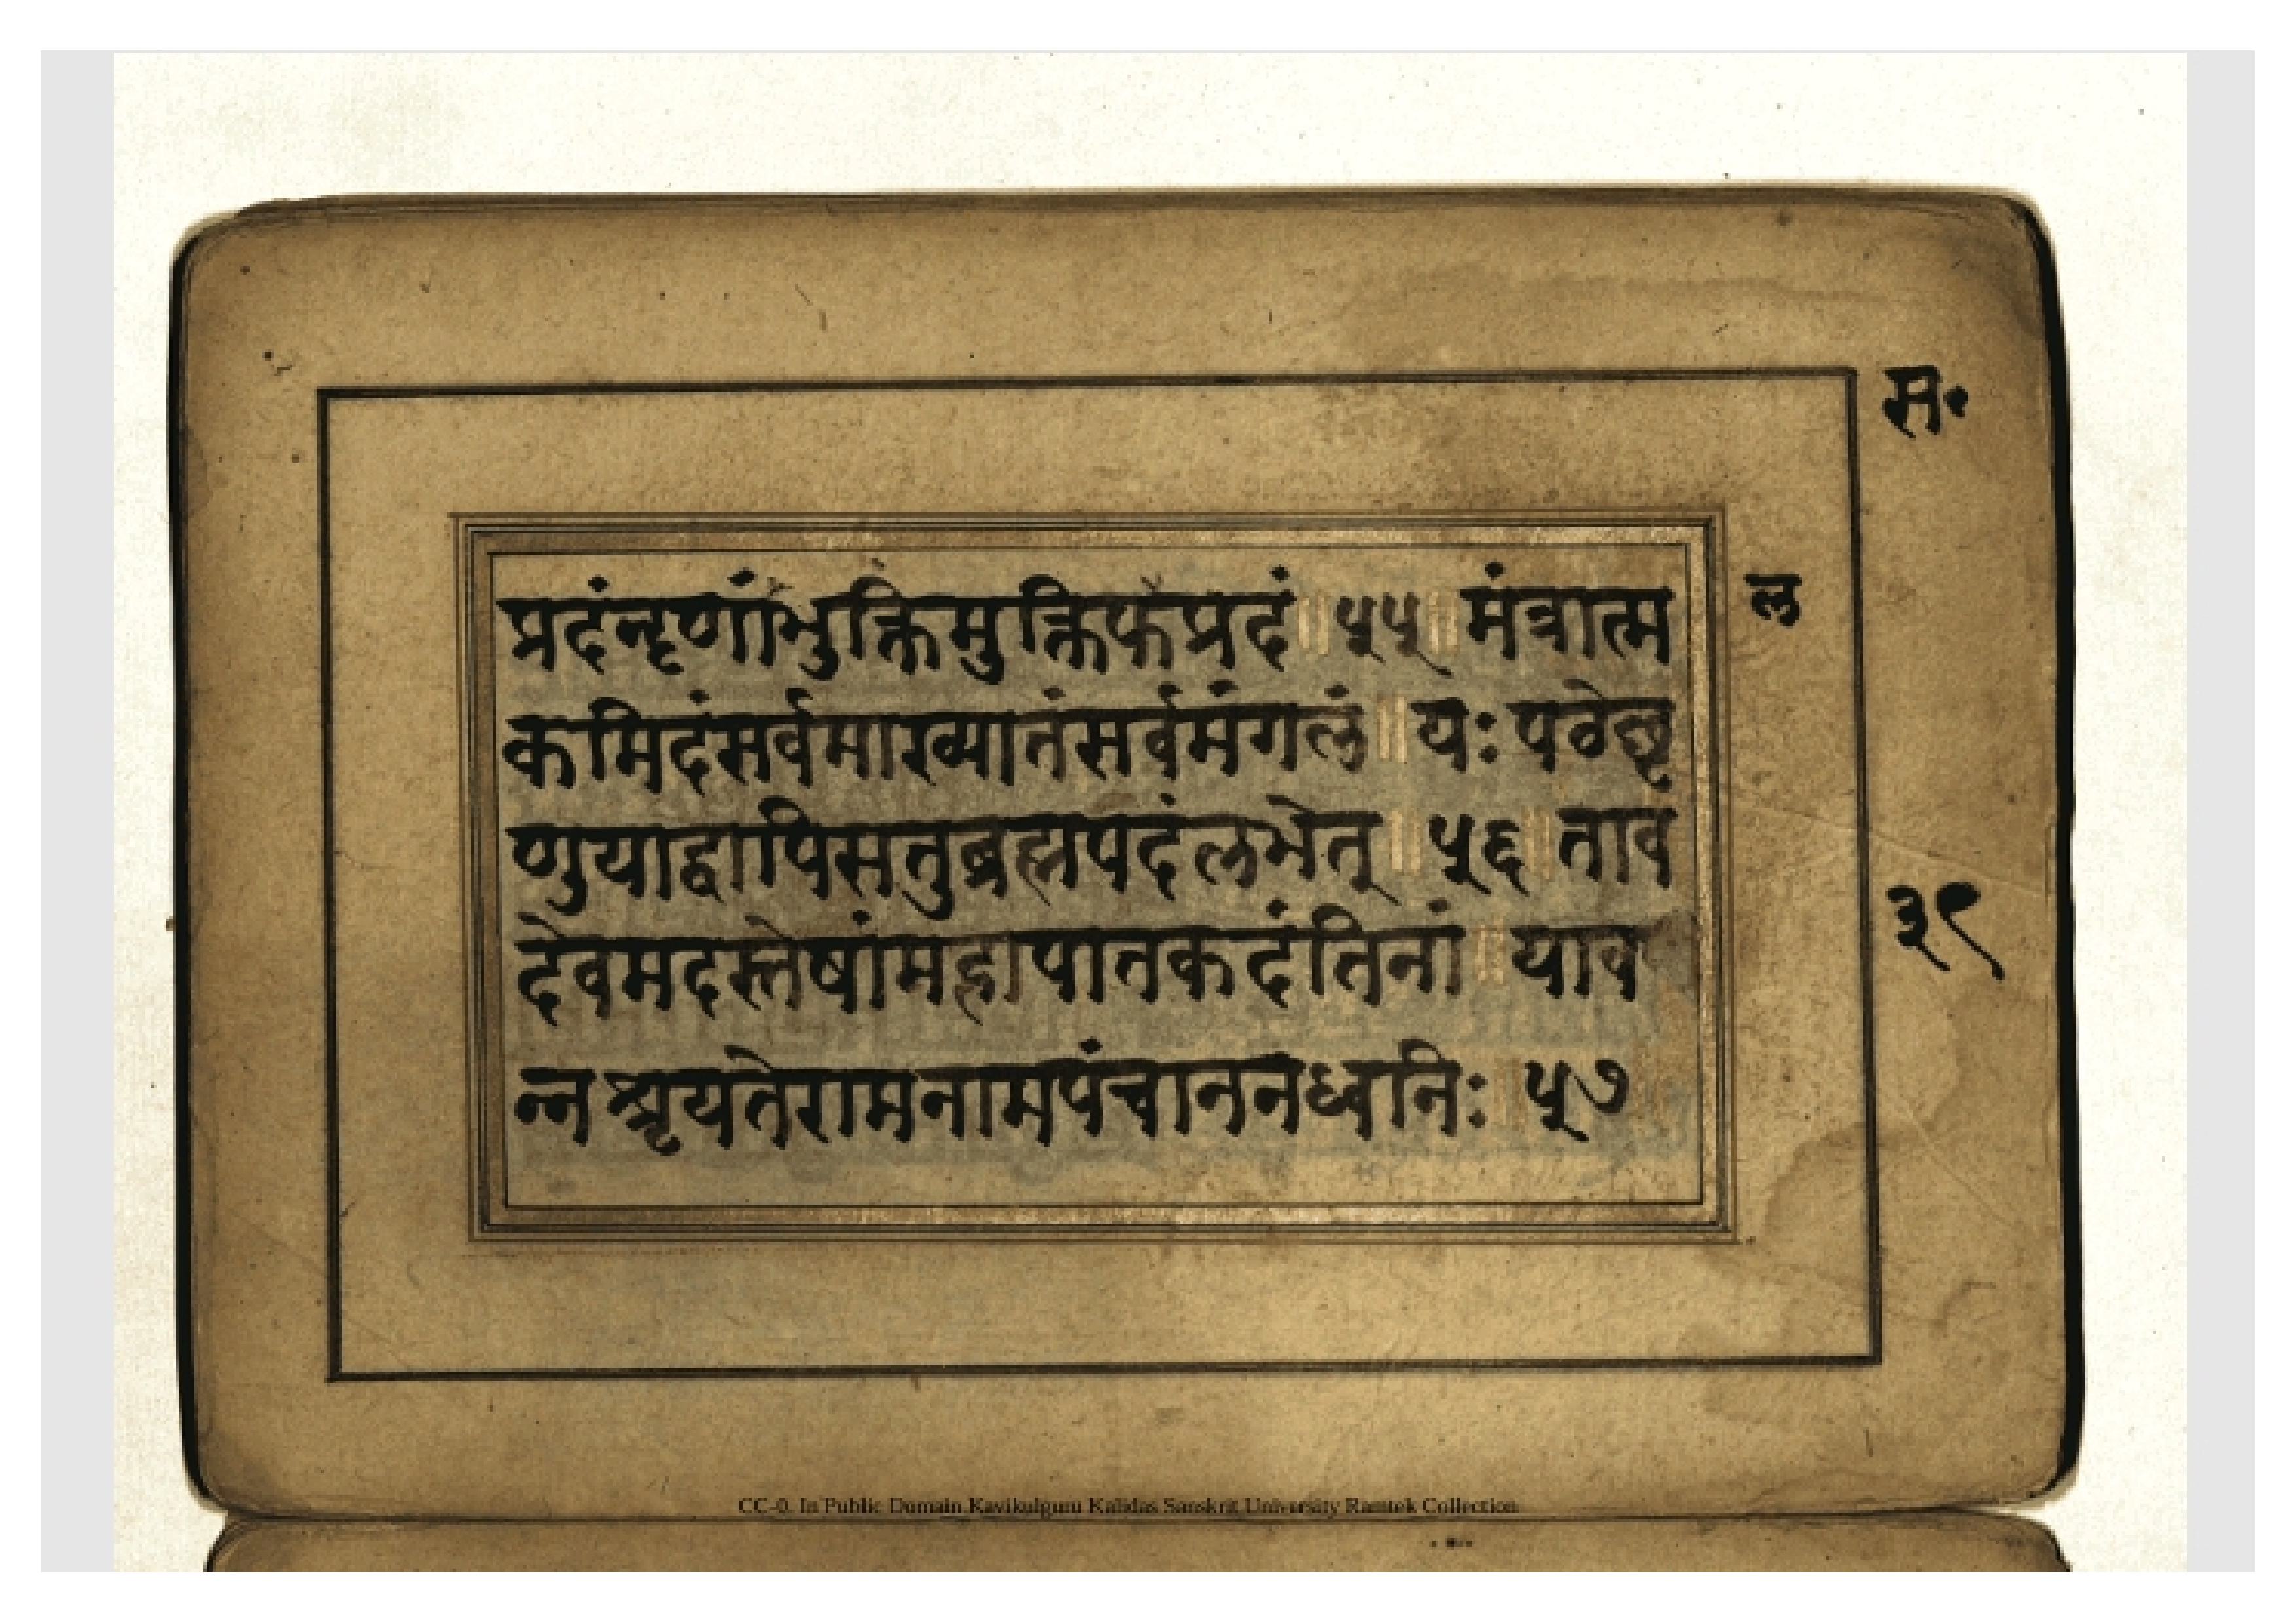 स॰
प्रदंनृणांभुक्तिमुक्तिफप्रदं॥५५॥मंत्रात्म
ल
कमिदंसर्वमाख्यातंसर्वमंगलं॥यःपठेछृ
णुयाद्वापिसतुब्रह्मपदंलभेत्॥५६॥ताव
देवमदस्तेषांमहापातकदंतिनां॥याव
३९
न्नश्रृयतेरामनामपंचाननध्वनिः॥५७
CC-0. In Public Domain.Kavikulguru Kalidas Sanskrit University Ramtek Collection